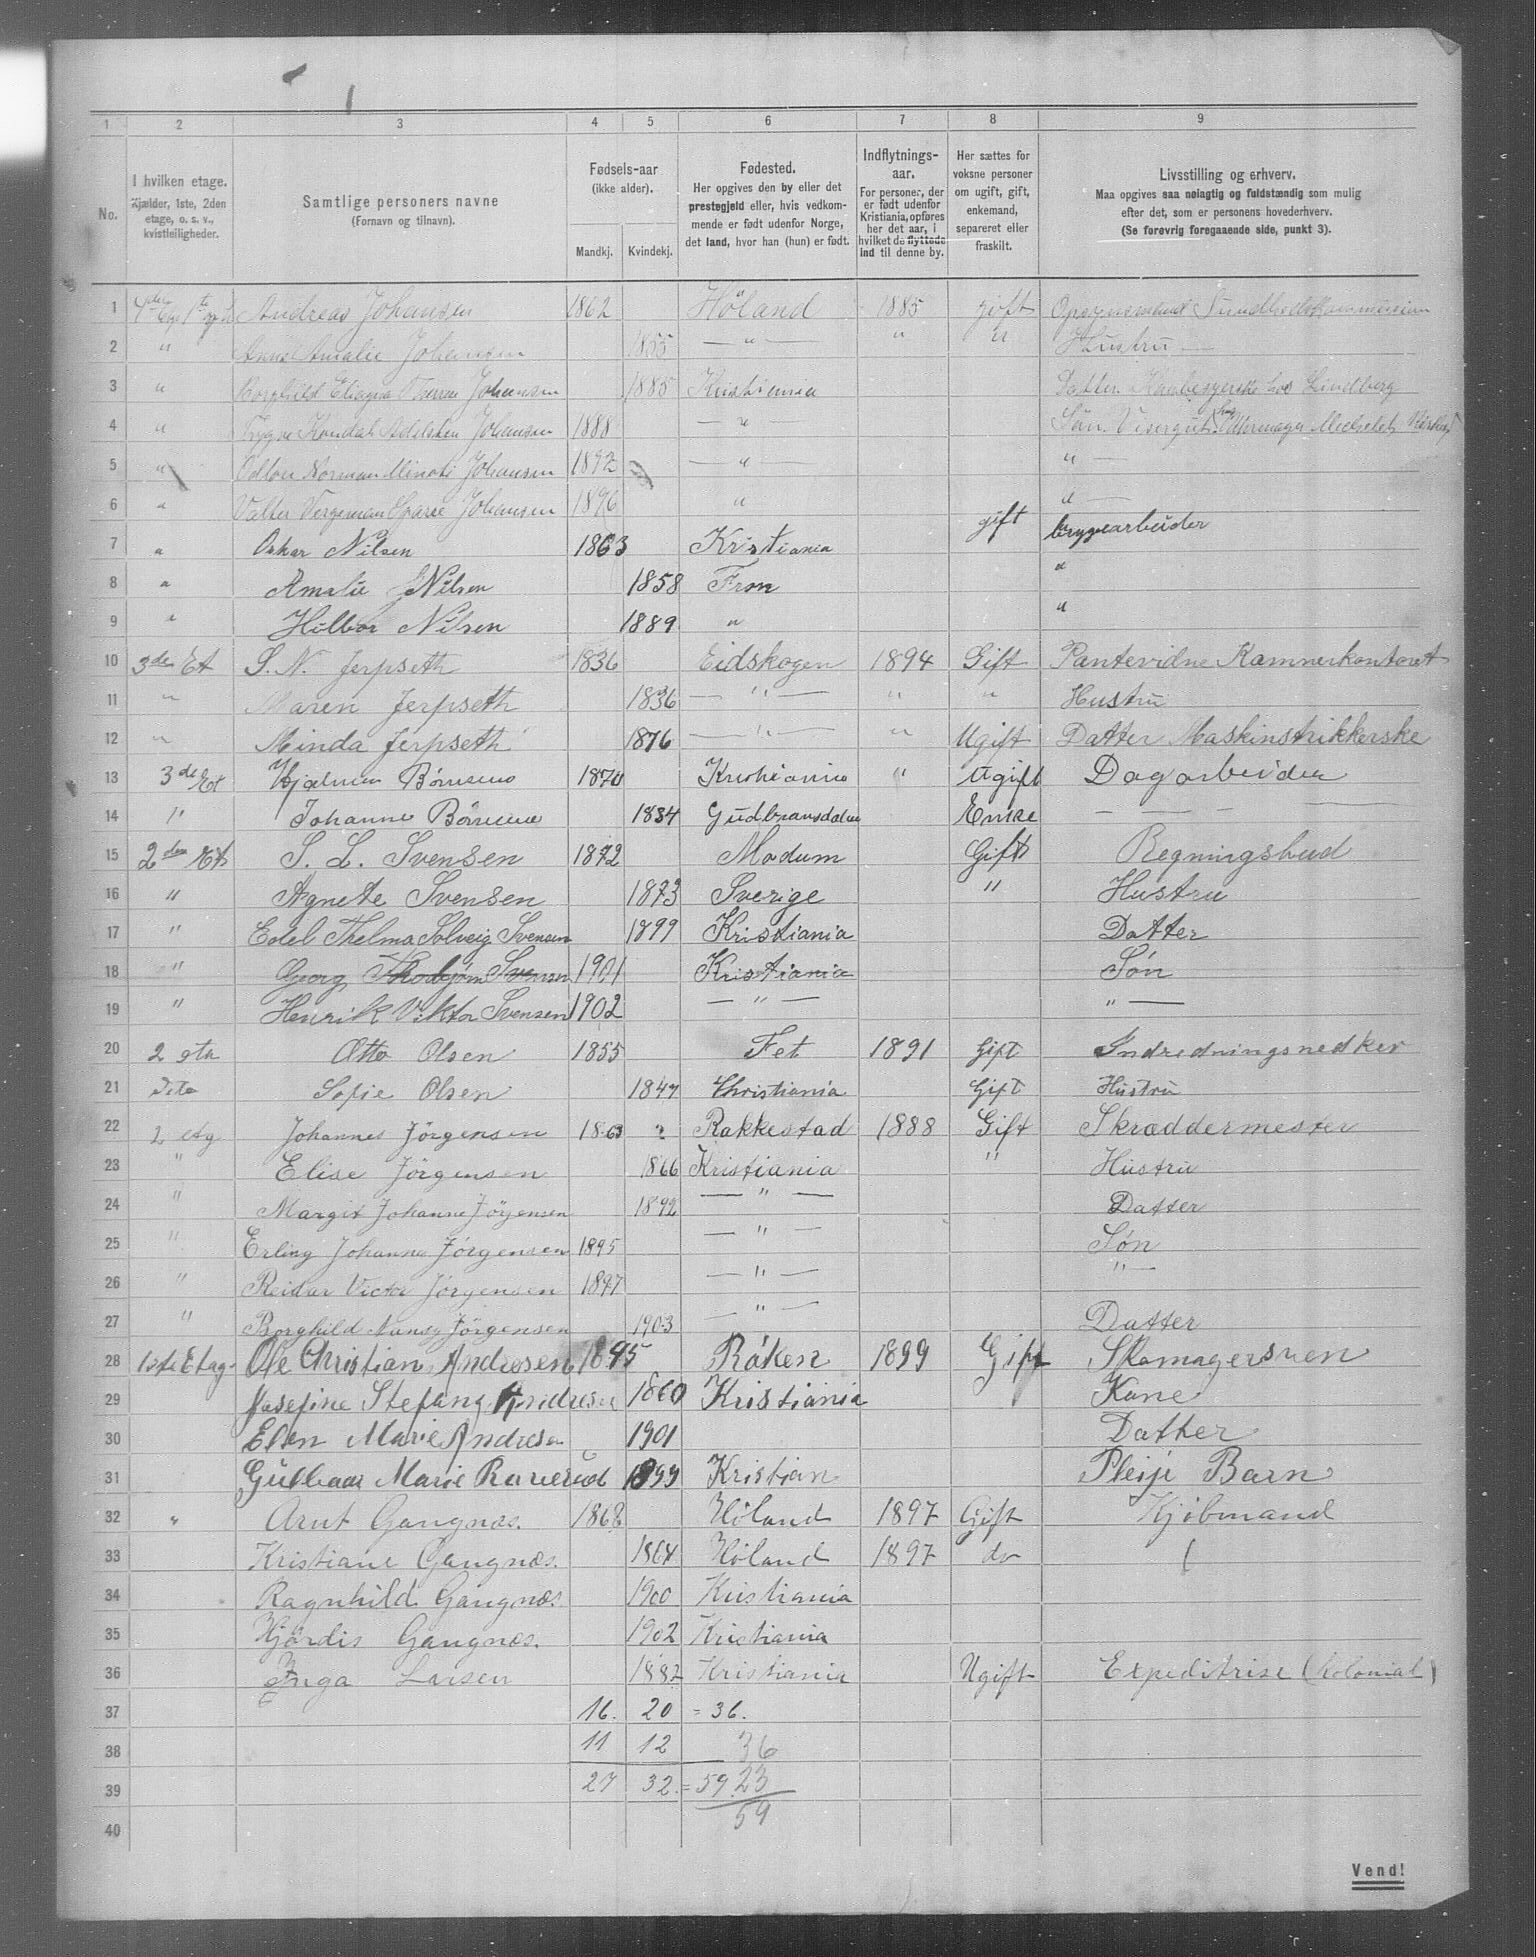 1 2 3 4 5 6 7 8 9
No.
I hvilken etage.
Kjælder, 1ste, 2den
etage, o. s. v.,
kvistleiligheder.
Samtlige personers navne
(Fornavn og tilnavn).
Fødsels-aar
(ikke alder).
Mandkj. Kvindekj.
Fødested.
Her opgives den by eller det
prestegjeld eller, hvis vedkom-
mende er født udenfor Norge,
det land, hvor han (hun) er født.
Indflytnings-
aar.
For personer, der
er født udenfor
Kristiania, opføres
her det aar, i
hvilket de flyttede
ind til denne by.
Her sættes for
voksne personer
om ugift, gift,
enkemand,
separeret eller
fraskilt.
Livsstilling og erhverv.
Maa opgives saa nøiagtig og fuldstændig som mulig
efter det, som er personens hovederhverv.
(Se forøvrig foregaaende side, punkt 3).
1 Andreas Johansen 1862 Høland 1885 gift Sundhedskommission
2 " Anna Amalie Johansen 1855 — " — " " Hustru —
3 " Johansen 1885 Kristiania Datter. Kaabesyerske hos Lindberg
4 " Johansen 1888 — " — Søn. Visergut
5 " Norman Johansen 1892 — " — " —
6 " Valter Johansen 1896 " " —
7 " Oskar Nilsen 1863 Kristiania gift bryggearbeider
8 " Amalie Nilsen 1858 Fron "
9 " Nilsen 1889 " "
10 3de Et S. N. Jerpseth 1836 Eidskogen 1894 Gift Pantevidne Kamnerkontoret
11 " Maren Jerpseth 1836 — " — " " Hustru
12 " Minda Jerpseth 1876 — " — " Ugift Datter Maskinstrikkerske
13 3de Et Hjalmar 1870 Kristiania " Ugift Dagarbeider
14 " Johanne 1834 Gudbransdalen Enke — — —
15 2den Et S. L. Svensen 1872 Modum Gift Regningsbud
16 " Agnete Svensen 1873 Sverige " Hustru
17 " Edel Thelma Solveig Svensen 1899 Kristiania Datter
18 " Georg Thorbjørn Svensen 1901 Kristiania Søn
19 " Henrik Viktor Svensen 1902 — " — " —
20 2 eta Otto Olsen 1855 Fet 1891 Gift Indredningsnedker
21 Sofie Olsen 1847 Christiania Gift Hustru
22 2 etg Johannes Jørgensen 1863 " Rakkestad 1888 Gift Skræddermester
23 " Elise Jørgensen 1866 Kristiania " Hustru
24 " Margit Johanne Jörgensen 1892 — " — Datter
25 " Erling Johannes Jörgensen 1895 — " — Søn
26 " Reidar Victor Jörgensen 1897 — " — " —
27 " Borghild Nansy Jörgensen 1903 — " — Datter
28 1ste Etag. Ole Christian Andresen 1845 Röken 1899 Gift Skomagersven
29 Josefine Stefang Andresen 1860 Kristiania Kone
30 Elen Marie Andresen 1901 Datter
31 Gulbaar Marie 1899 Kristian Pleije Barn
32 " Arnt Gangnæs. 1868 Høland 1897 Gift Kjøbmand
33 Kristiane Gangnæs. 1864 Høland 1897 do
34 Ragnhild Gangnæs. 1900 Kristiania
35 Hjördis Gangnæs. 1902 Kristiania
36 Inga Larsen 1882 Kristiania Ugift Expeditrise (kolonial)
37 16. 20 = 36.
38 11 12 36
39 27 32 = 59 23
40 59
Vend!